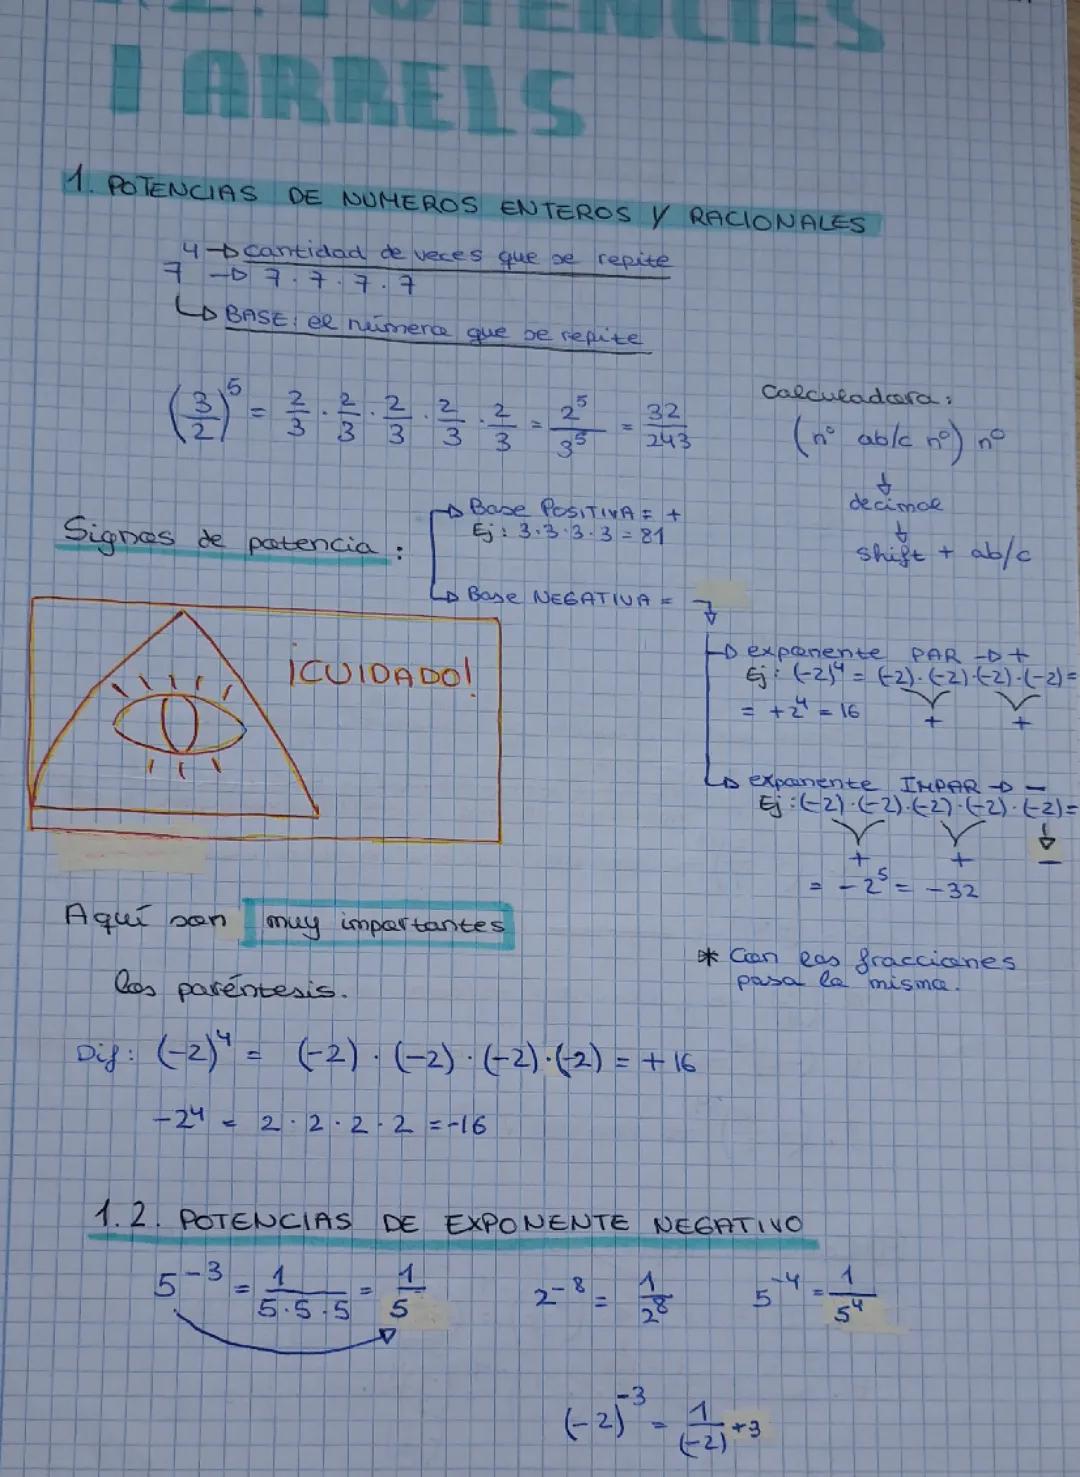 2. POTÈNCIES
I ARRELS
1. POTENCIAS DE NUMEROS ENTEROS Y RACIONALES
4 → cantidad de veces que se repite
7 → 7 · 7 · 7 · 7
↳ BASE: el número que se repite
(3/2)^5 = 2/3 · 2/3 · 2/3 · 2/3 · 2/3 = 2^5/3^5 = 32/243
Calculadora:
(nº ab/c nº) nº
↓
decimal
↓
shift + ab/c
Signos de potencia:
→ Base POSITIVA = +
Ej: 3·3·3·3 = 81
→ Base NEGATIVA =
→ exponente PAR → +
Ej: (-2)^4 = (-2)·(-2)·(-2)·(-2)=
= +2^4 = 16
+ +
→ exponente IMPAR → -
Ej: (-2)·(-2)·(-2)·(-2)·(-2)=
+ + -
= -2^5 = -32
¡CUIDADO!
Aquí son muy importantes
los paréntesis.
* Con las fracciones
pasa lo mismo.
Dif: (-2)^4 = (-2)·(-2)·(-2)·(-2) = +16
-2^4 = 2·2·2·2 = -16
1.2. POTENCIAS DE EXPONENTE NEGATIVO
5^-3 = 1/5·5·5 = 1/5
2^-8 = 1/2^8
5^-4 = 1/5^4
(-2)^-3 = 1/(-2) +3